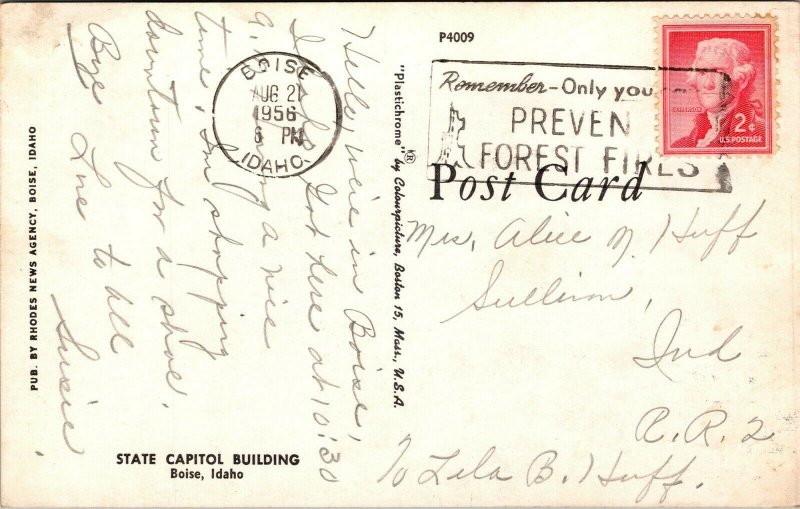 P4009
BOISE
AUG 21
1956
6 PM
IDAHO
Remember - Only you
PREVEN
FOREST FIRES
JEFFERSON
2¢
U.S. POSTAGE
Post Card
Hello, we're in Boise,
Got here at 10:30
a nice
time, I'm shopping
downtown for a shoe.
Bye Love to all
Susie.
Mrs. Alice N. Huff
Sullivan,
Ind
R.R. 2
℅ Lela B. Huff.
"Plastichrome" ® by Colourpicture, Boston 15, Mass., U.S.A.
PUB. BY RHODES NEWS AGENCY, BOISE, IDAHO
STATE CAPITOL BUILDING
Boise, Idaho